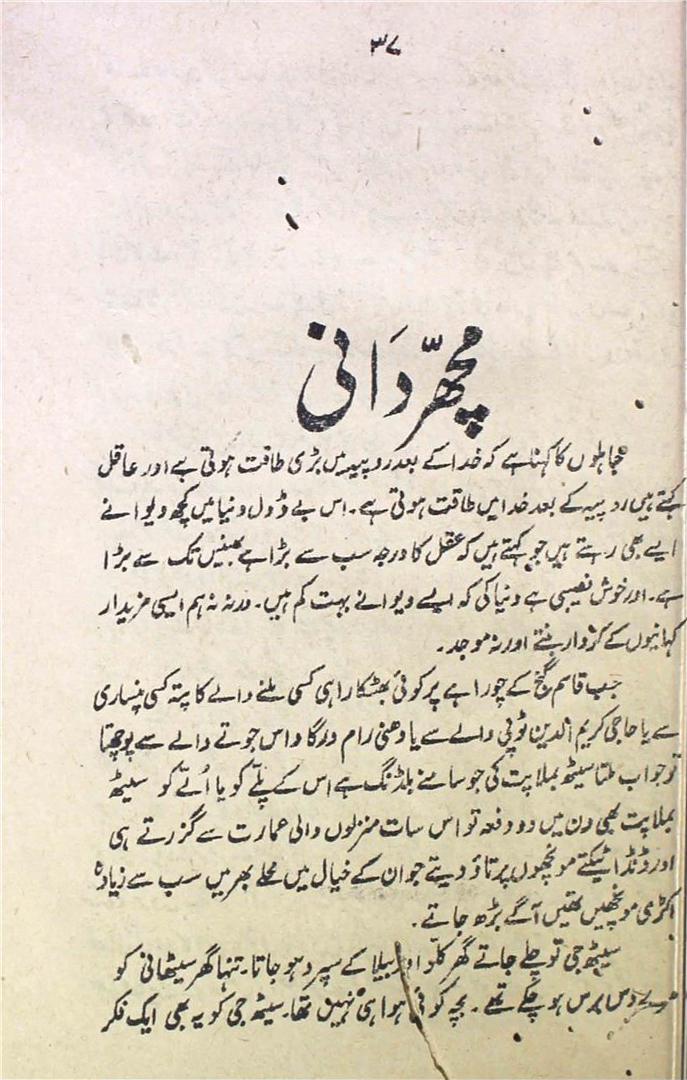 ۳۷
مچھّر دَانی
جاہلوں کا کہنا ہے کہ خدا کے بعد روپیہ میں بڑی طاقت ہوتی ہے اور عاقل
کہتے ہیں روپیہ کے بعد خدا میں طاقت ہوتی ہے۔ اس بے ڈول دنیا میں کچھ دیوانے
ایسے بھی رہتے ہیں جو کہتے ہیں کہ عقل کا درجہ سب سے بڑا ہے بھینس تک سے بڑا
ہے۔ اور خوش نصیبی ہے دنیا کی کہ ایسے دیوانے بہت کم ہیں۔ ورنہ نہ ہم ایسی مزیدار
کہانیوں کے کردار بنتے اور نہ موجد۔
جب قاسم گنج کے چوراہے پر کوئی بھٹکا راہی کسی ملنے والے کا پتہ کسی پنساری
سے یا حاجی کریم الدین ٹوپی والے سے یا دھنی رام درگا داس جوتے والے سے پوچھتا
تو جواب ملتا سیٹھ بملاپت کی جو سامنے بلڈنگ ہے اس کے پلّے کو یا اُلّے کو سیٹھ
بملاپت بھی دن میں دو دفعہ تو اس سات منزلوں والی عمارت سے گزرتے ہی
اور ڈنڈا ٹیکتے مونچھوں پر تاؤ دیتے جو ان کے خیال میں محلے بھر میں سب سے زیادہ
اکڑی مونچھیں تھیں آگے بڑھ جاتے۔
سیٹھ جی تو چلے جاتے گھر کلّو اور بیلا کے سپرد ہو جاتا۔ تنہا گھر سیٹھانی کو
دس برس ہو چکے تھے۔ بچہ کوئی ہوا ہی نہیں تھا۔ سیٹھ جی کو یہ بھی ایک فکر